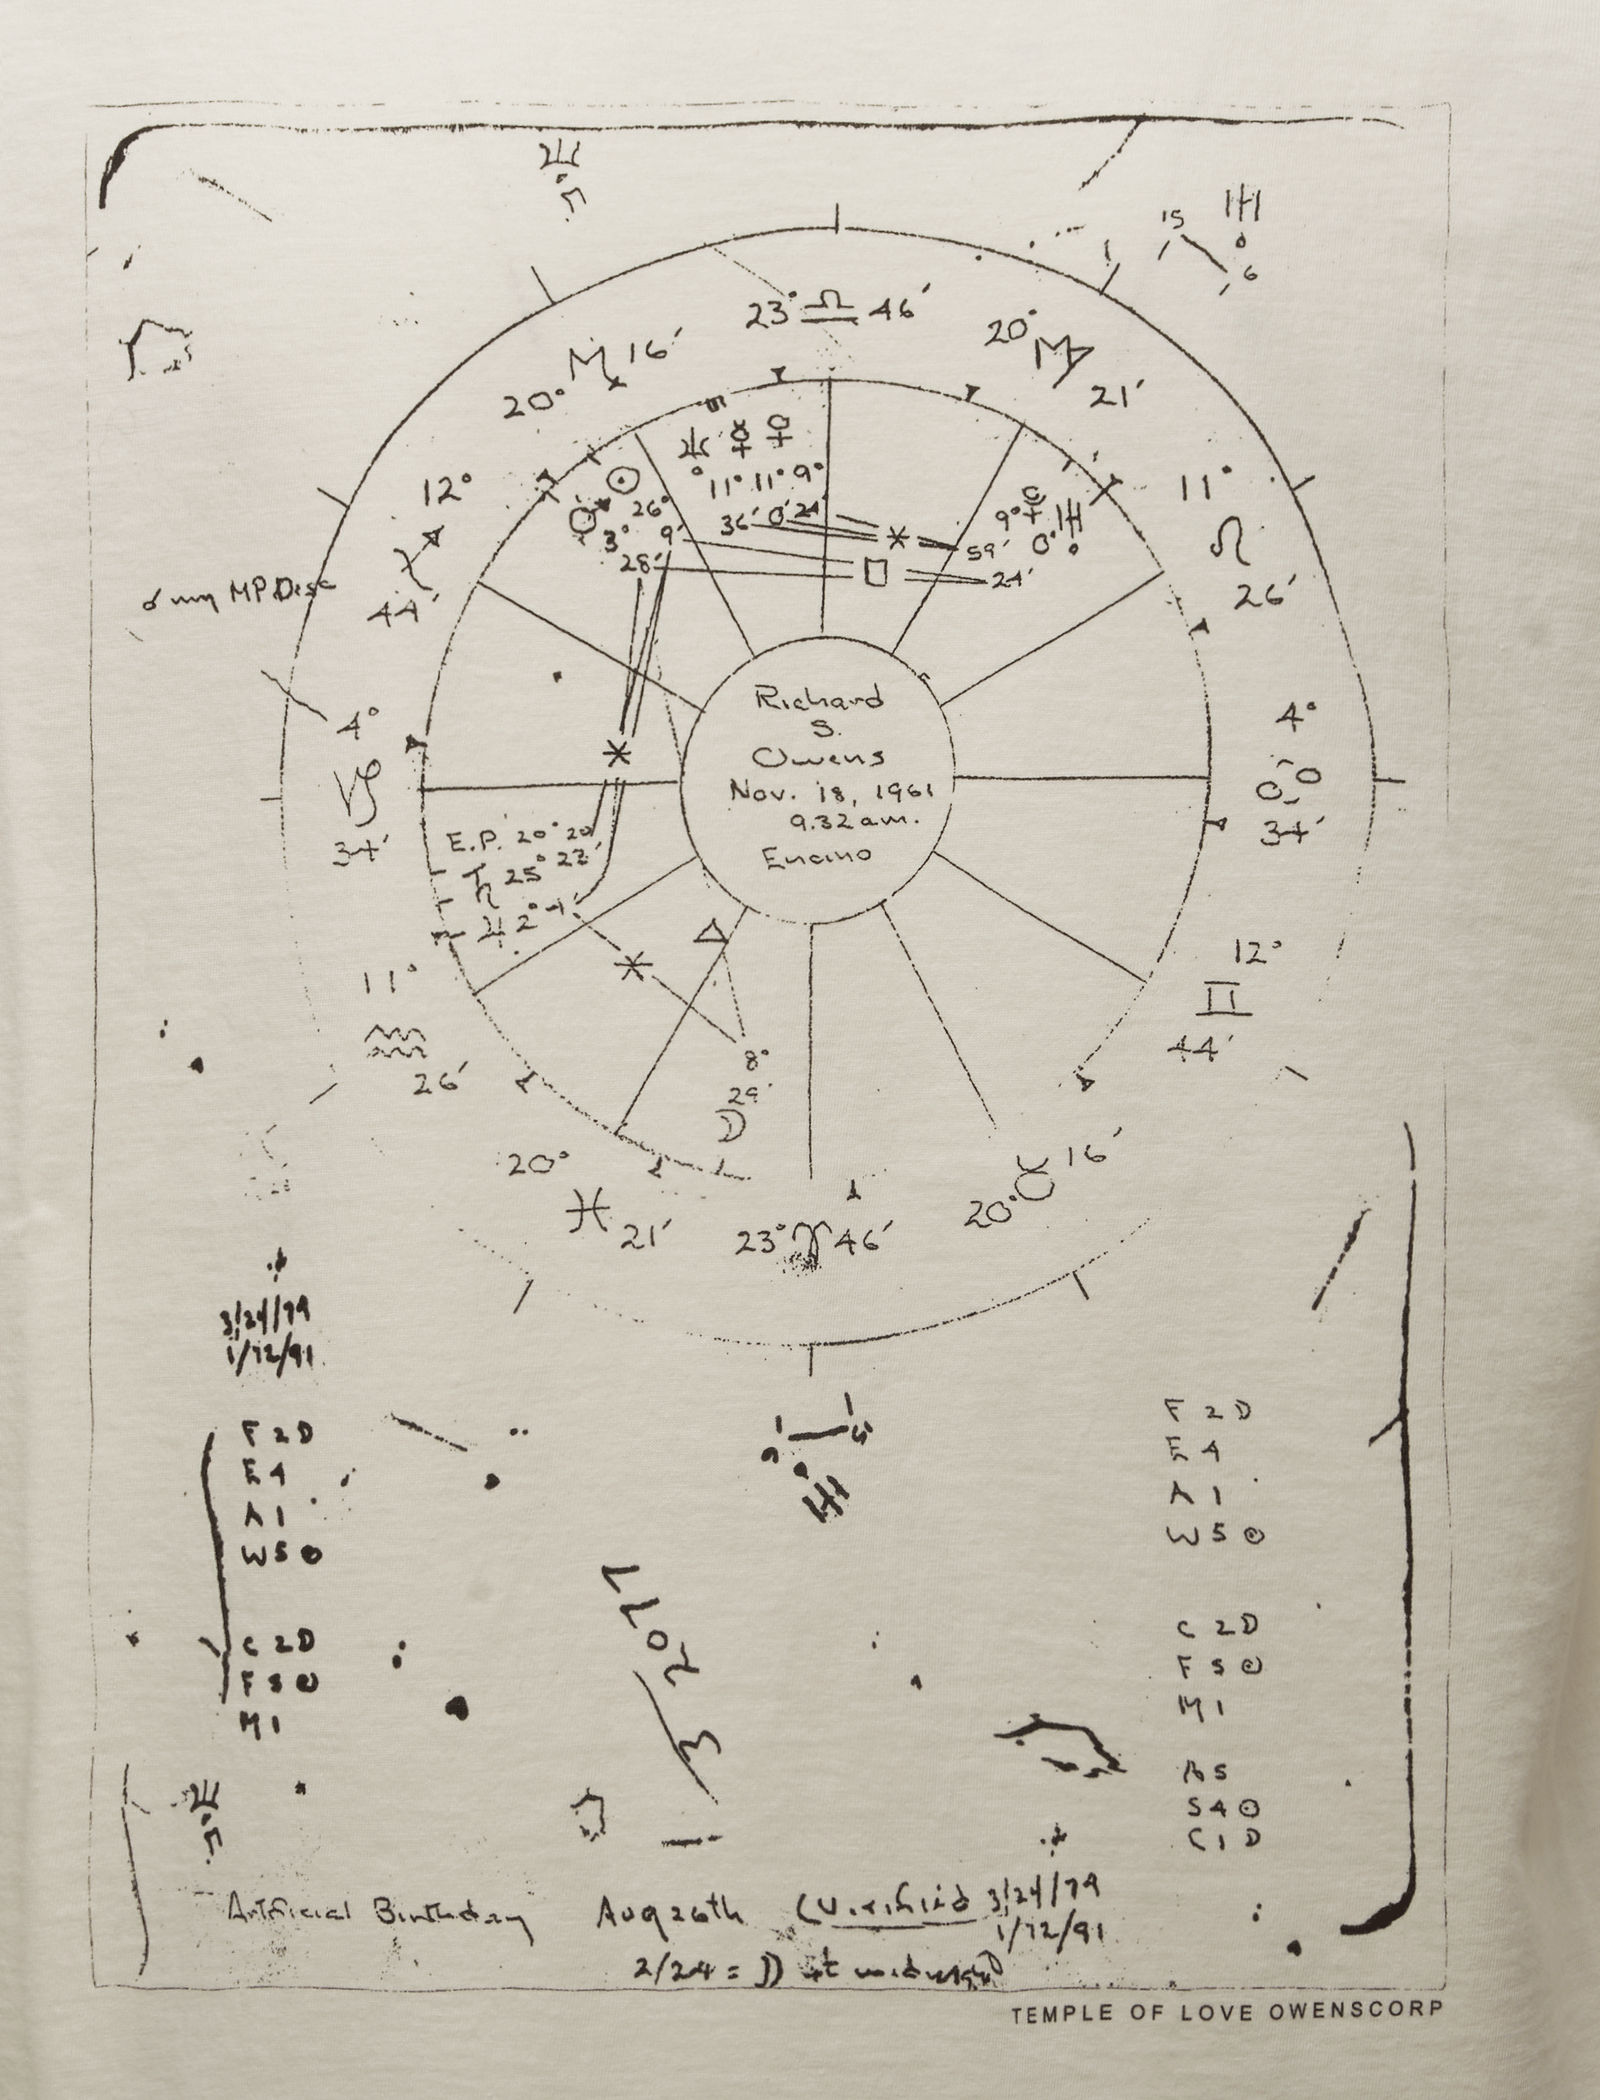 15
6
23° ♎ 46′
20° ♏ 16′
20° ♍ 21′
12° ♐ 44′
11° ♌ 26′
☉ 26° 9′
♂ 3° 28′
♆ ☿ ♀
11° 11° 9°
36′ 0′ 24′
9° 0°
59′
24′
☌ my MP.Desc
4° ♑ 34′
4° ♋ 34′
Richard
S.
Owens
Nov. 18, 1961
9.32 am.
Encino
E.P. 20° 20′
♄ 25° 22′
♃ 2°
11° ♒ 26′
12° ♊ 44′
8°
29′
☽
20° ♓ 21′
23° ♈ 46′
20° ♉ 16′
3/24/79
1/12/91
F 2 D
E 4
A 1
W 5 ☉
C 2 D
F 5 ☉
M 1
F 2 D
E 4
A 1
W 5 ☉
C 2 D
F 5 ☉
M 1
A 5
S 4 ☉
C 1 D
Artificial Birthday Aug 26th (Verified 3/24/79
1/12/91
2/24 = ☽ at midnight
TEMPLE OF LOVE OWENSCORP